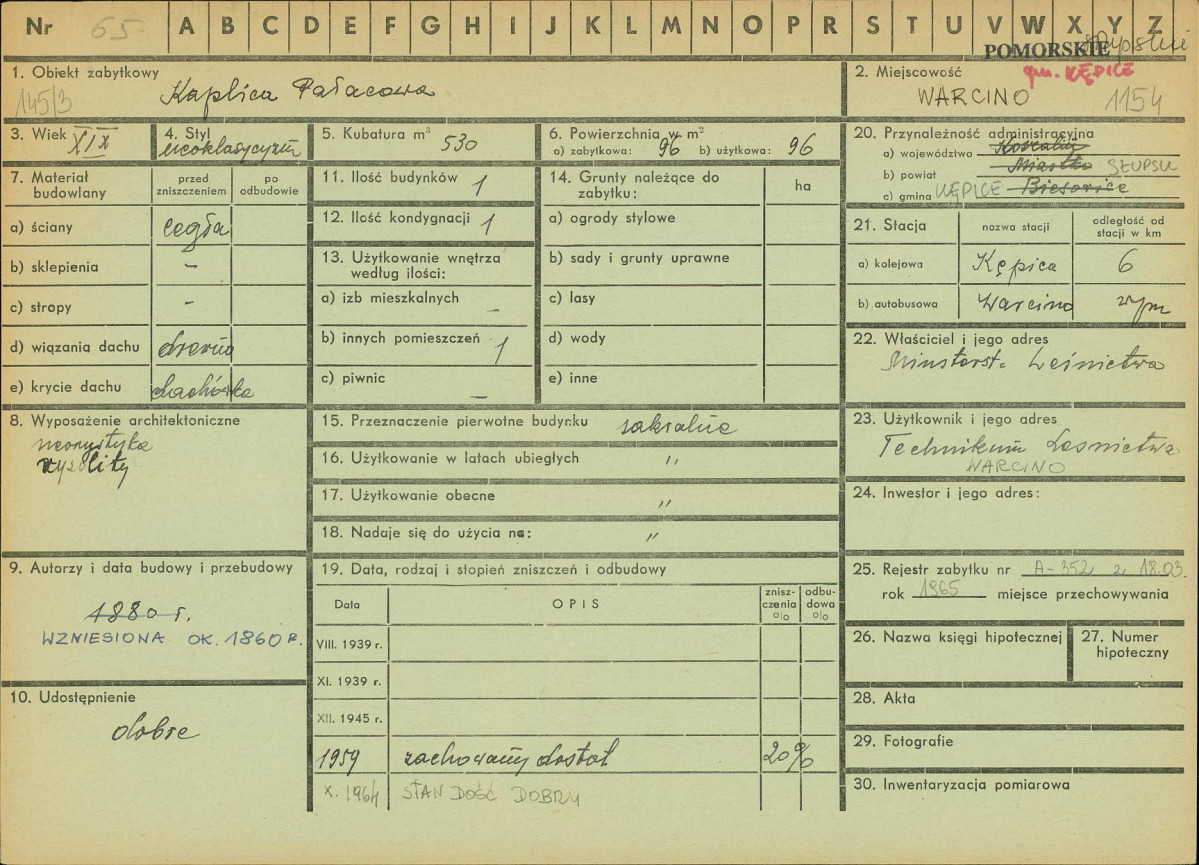 Nr 65. A B C D E F G H I J K L M N O P R S T U V W X Y Z
POMORSKIE
1. Obiekt zabytkowy
145/3 Kaplica Pałacowa
2. Miejscowość gm. KĘPICE
WARCINO 1154
3. Wiek XIX
4. Styl neoklasycyzm
5. Kubatura m³ 530
6. Powierzchnia w m²
a) zabytkowa: 96 b) użytkowa: 96
7. Materiał budowlany
przed zniszczeniem
po odbudowie
a) ściany cegła
b) sklepienia –
c) stropy –
d) wiązania dachu drewno
e) krycie dachu dachówka
8. Wyposażenie architektoniczne
ryzality
9. Autorzy i data budowy i przebudowy
1880 r.
WZNIESIONA OK. 1860 R.
10. Udostępnienie
dobre
11. Ilość budynków 1
12. Ilość kondygnacji 1
13. Użytkowanie wnętrza
według ilości:
a) izb mieszkalnych –
b) innych pomieszczeń 1
c) piwnic –
14. Grunty należące do
zabytku:
ha
a) ogrody stylowe
b) sady i grunty uprawne
c) lasy
d) wody
e) inne
15. Przeznaczenie pierwotne budynku sakralne
16. Użytkowanie w latach ubiegłych "
17. Użytkowanie obecne "
18. Nadaje się do użycia na: "
19. Data, rodzaj i stopień zniszczeń i odbudowy
Data
OPIS
znisz-
czenia
%
odbu-
dowa
%
VIII. 1939 r.
XI. 1939 r.
XII. 1945 r.
1959 zachowany dostat 20%
X. 1964 STAN DOŚĆ DOBRY
20. Przynależność administracyjna
a) województwo Koszalin
b) powiat Miastko SŁUPSK
c) gmina KĘPICE Biesowice
21. Stacja
nazwa stacji
odległość od
stacji w km
a) kolejowa Kępica 6
b) autobusowa Warcino
22. Właściciel i jego adres
Ministerst. Leśnictwa
23. Użytkownik i jego adres
Technikum Leśnictwa
WARCINO
24. Inwestor i jego adres:
25. Rejestr zabytku nr A-352 z 18.03.
rok 1965 miejsce przechowywania
26. Nazwa księgi hipotecznej
27. Numer
hipoteczny
28. Akta
29. Fotografie
30. Inwentaryzacja pomiarowa